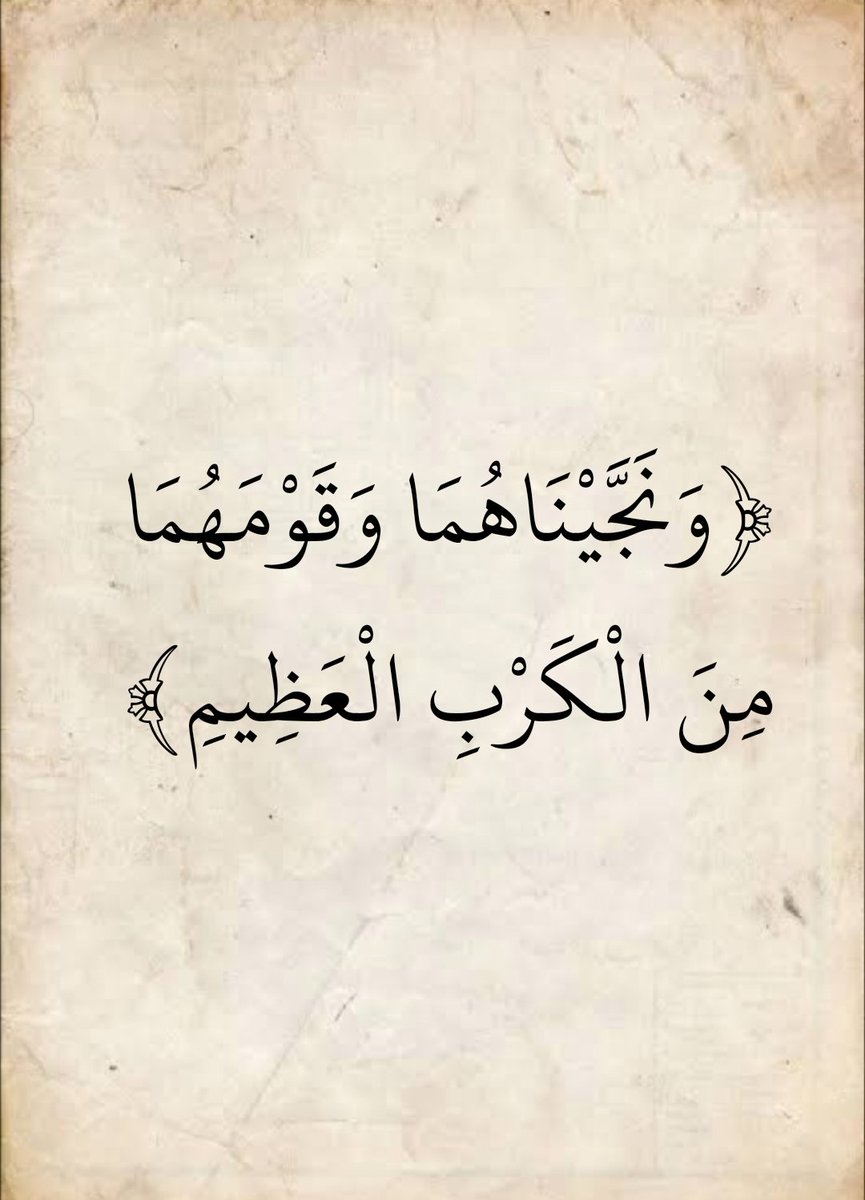 ﴿وَنَجَّيْنَاهُمَا وَقَوْمَهُمَا
مِنَ الْكَرْبِ الْعَظِيمِ﴾